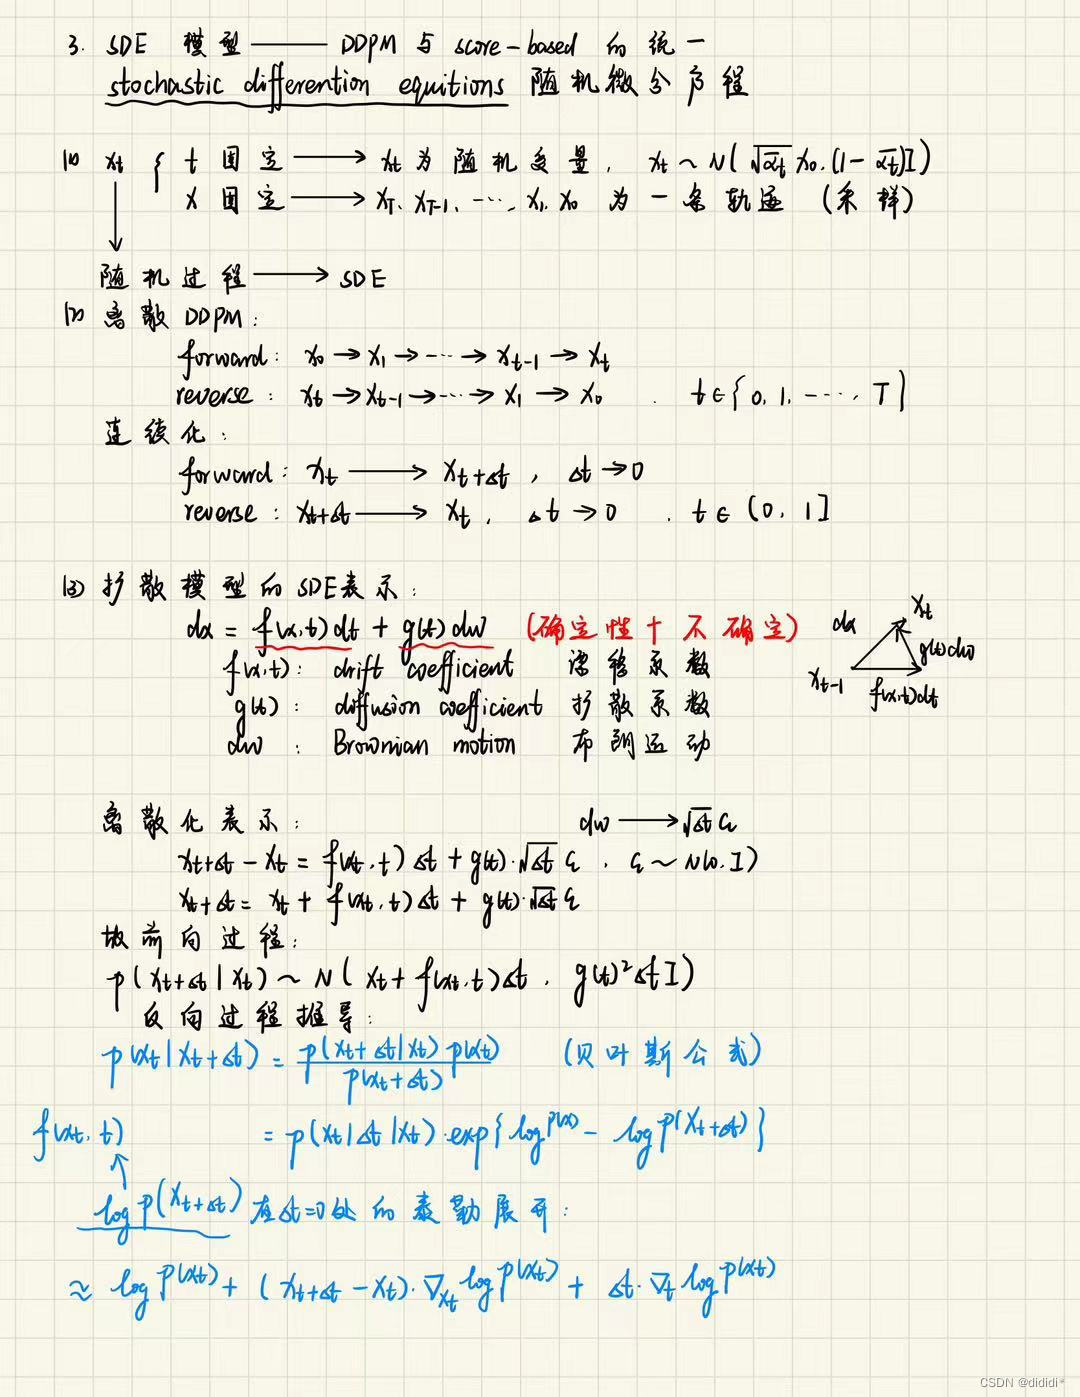 3. SDE 模型 —— DDPM 与 score-based 的统一
stochastic differention equitions 随机微分方程
(1) xt { t 固定 → xt 为随机变量, xt ~ N(√ᾱt x0, (1-ᾱt)I)
x 固定 → xT, xT-1, ..., x1, x0 为一条轨迹 (采样)
随机过程 → SDE
(2) 离散 DDPM:
forward: x0 → x1 → ... → xt-1 → xt
reverse: xt → xt-1 → ... → x1 → x0 . t∈{0, 1, ..., T}
连续化:
forward: xt → xt+Δt , Δt→0
reverse: xt+Δt → xt, Δt→0 . t∈(0, 1]
(3) 扩散模型的SDE表示:
dx = f(x,t)dt + g(t)dw (确定性+不确定)
dx xt g(t)dw xt-1 f(x,t)dt
f(x,t): drift coefficient 漂移系数
g(t): diffusion coefficient 扩散系数
dw : Brownian motion 布朗运动
离散化表示: dw → √Δt ε
xt+Δt - xt = f(xt,t)Δt + g(t)·√Δt ε , ε ~ N(0,I)
xt+Δt = xt + f(xt,t)Δt + g(t)·√Δt ε
故前向过程:
p(xt+Δt|xt) ~ N(xt + f(xt,t)Δt, g(t)²ΔtI)
反向过程推导:
p(xt|xt+Δt) = p(xt+Δt|xt)p(xt) / p(xt+Δt) (贝叶斯公式)
f(xt,t) = p(xt|Δt|xt)·exp{log p(x) - log p(xt+Δt)}
log p(xt+Δt) 在Δt=0处的泰勒展开:
≈ log p(xt) + (xt+Δt - xt)·∇xt log p(xt) + Δt·∇t log p(xt)
CSDN @dididi°